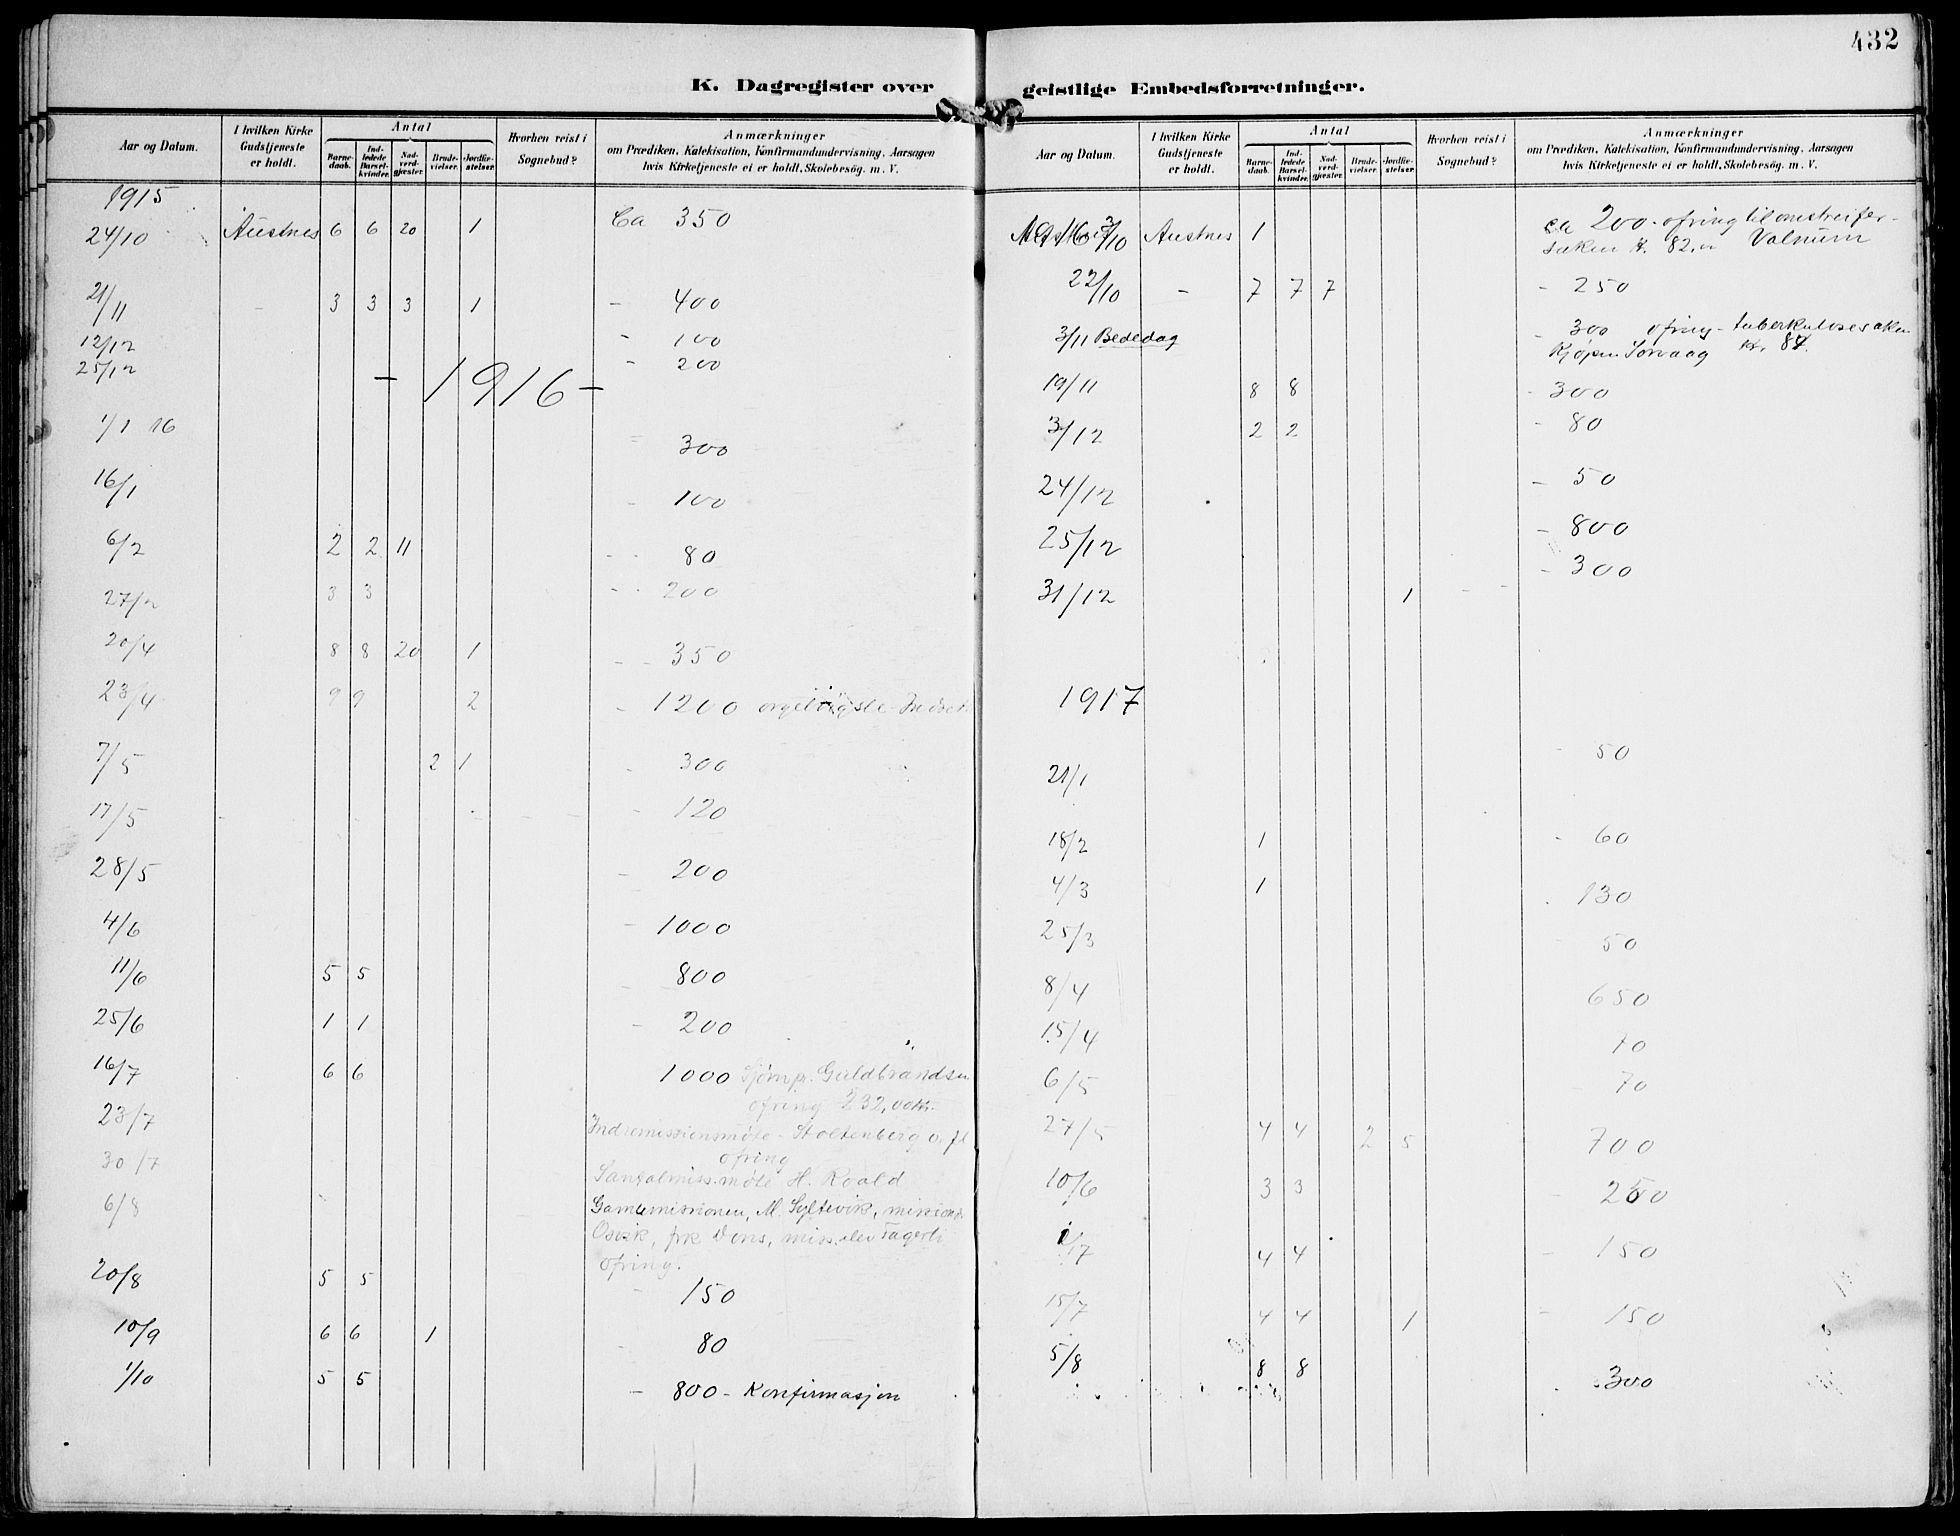 432
K. Dagregister over geistlige Embedsforretninger.
Aar og Datum. I hvilken Kirke Gudstjeneste er holdt. Antal Barnedaab. Indledede Barselkvinder. Nadverdgjæster. Brudevielser. Jordfæstelser. Hvorhen reist i Sognebud? Anmærkninger om Prædiken, Katekisation, Konfirmandundervisning, Aarsagen hvis Kirketjeneste ei er holdt, Skolebesøg. m. V.
1915
24/10 Austnes 6 6 20 1 Ca 350
21/11 - 3 3 3 1 - 400
12/12 - 100
25/12 - 200
- 1916 -
1/1 16 300
16/1 - 100
6/2 2 2 11 - 80
27/2 3 3 - 200
20/4 8 8 20 1 - 350
23/4 9 9 2 - 1200
7/5 2 1 - 300
17/5 - 120
28/5 - 200
4/6 - 1000
11/6 5 5 - 800
25/6 1 1 - 200
16/7 6 6 1000 Sjømpr. Guldbrandsen
ofring 232,00 kr.
23/7 Indremissionsmøte - Stoltenberg o. fl
ofring
30/7 Santalmiss.møte H. Roald
6/8 M. Syltevik,
Osvik, frk Dons, miss.elev Fagerli
ofring.
20/8 5 5 - 150
10/9 6 6 1 - 80
1/10 5 5 - 800 - Konfirmasjon
Aar og Datum. I hvilken Kirke Gudstjeneste er holdt. Antal Barnedaab. Indledede Barselkvinder. Nadverdgjæster. Brudevielser. Jordfæstelser. Hvorhen reist i Sognebud? Anmærkninger om Prædiken, Katekisation, Konfirmandundervisning, Aarsagen hvis Kirketjeneste ei er holdt, Skolebesøg. m. V.
/10 Austnes 1 ca 200 - ofring til omstreifer-
saken kr. 82,
22/10 - 7 7 7 - 250
3/11 Bededag - 300 ofring - tuberkulosesaken
19/11 8 8 - 300
3/12 2 2 - 80
24/12 - 50
25/12 - 800
31/12 1 - 300
1917
21/1 - 50
18/2 1 - 60
4/3 1 130
25/3 50
8/4 650
15/4 70
6/5 - 70
27/5 4 4 2 5 700
10/6 3 3 - 250
1/7 4 4 - 150
15/7 4 4 1 - 150
5/8 8 8 300